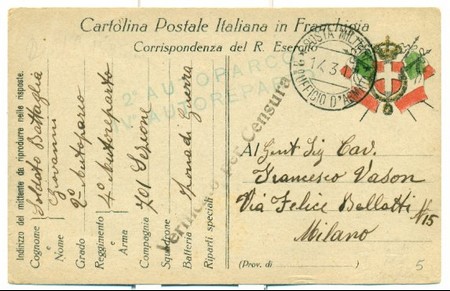 Cartolina Postale Italiana in Franchigia
Corrispondenza del R. Esercito
POSTA MILITARE
UFFICIO D'ARMATA
2° AUTOPARCO
AUTOREPARTO
Verificato per Censura
Indirizzo del mittente da riprodurre nelle risposte.
Cognome e Nome
Soldato Battaglia
Giovanni
Grado
2° Autoparco
Reggimento e Arma
4° Autoreparto
Compagnia
701 Sezione
Squadrone
Batteria
Zona di Guerra
Riparti speciali
Al Gent Sig Cav.
Francesco Vason
Via Felice Bellotti N15
Milano
(Prov. di )
5